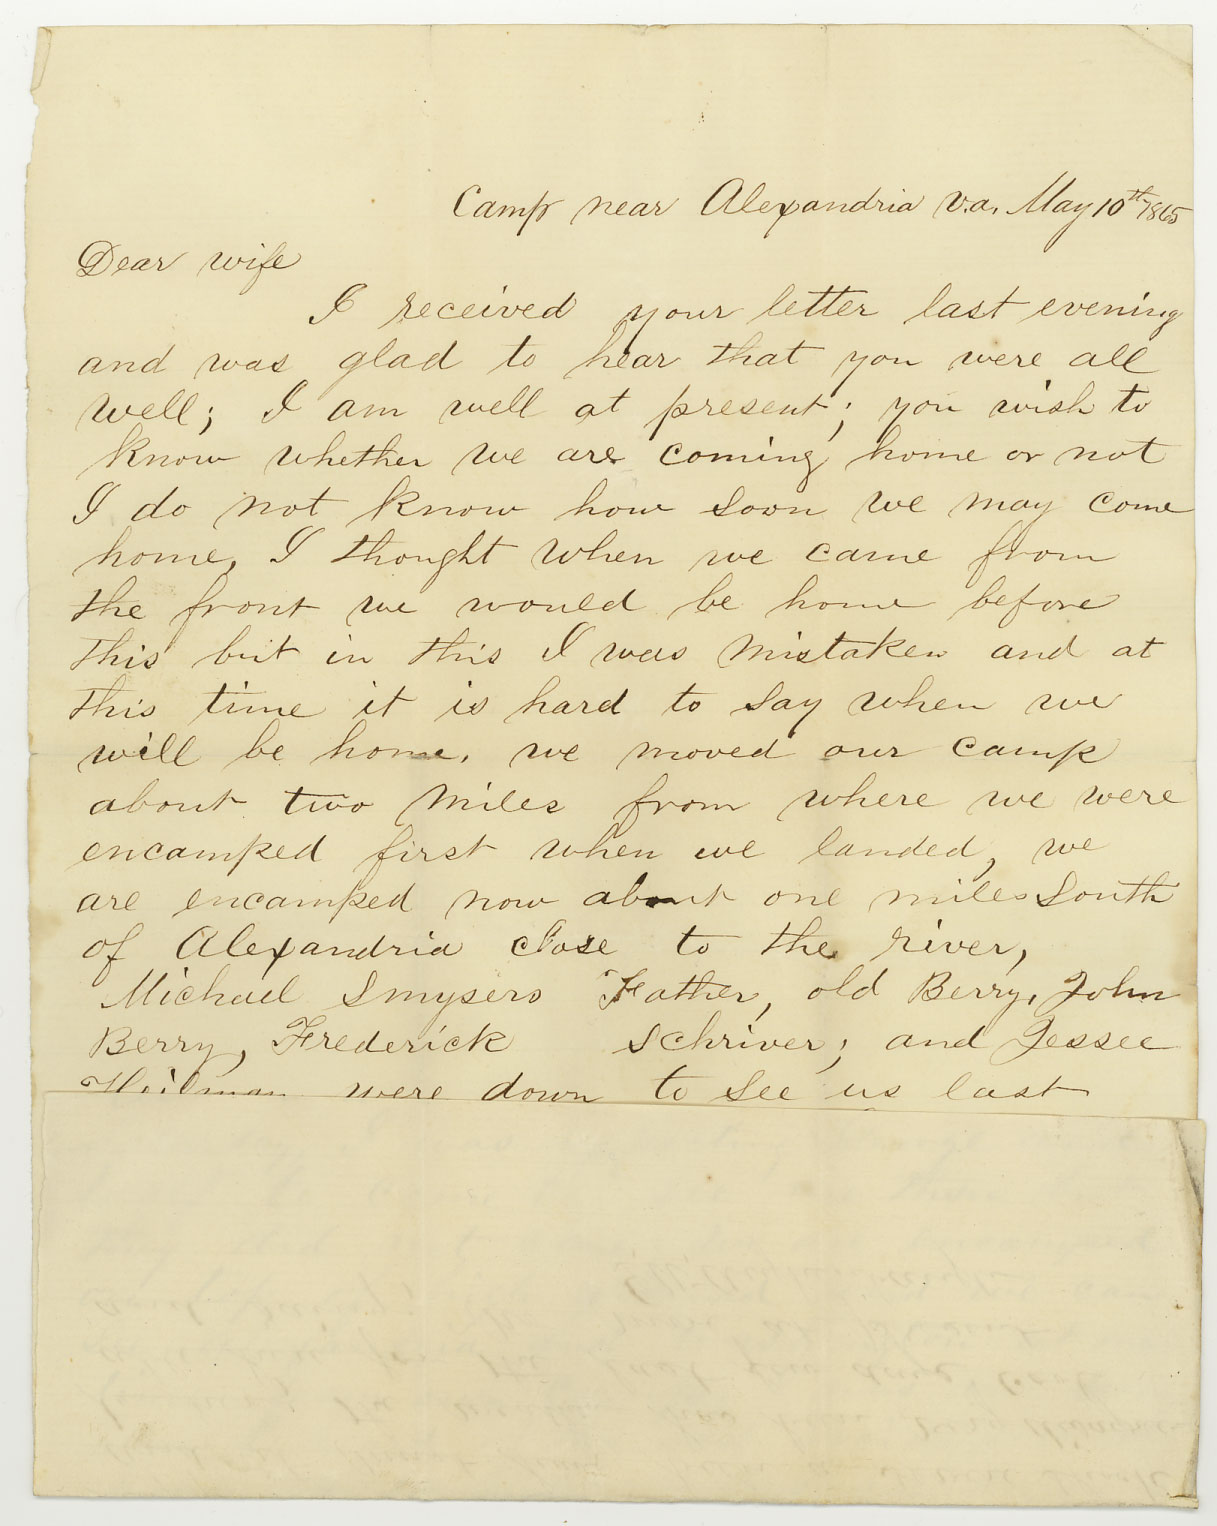 Camp near Alexandria V.a. May 10th 1865
Dear wife
I received your letter last evening
and was glad to hear that you were all
well; I am well at present; you wish to
know whether we are coming home or not
I do not know how soon we may come
home, I thought when we came from
the front we would be home before
this but in this I was mistaken and at
this time it is hard to say when we
will be home. we moved our camp
about two miles from where we were
encamped first when we landed, we
are encamped now about one miles South
of Alexandria close to the river,
Michael Smysers Father, old Berry, John
Berry, Frederick Schriver; and Jessee
were down to see us last